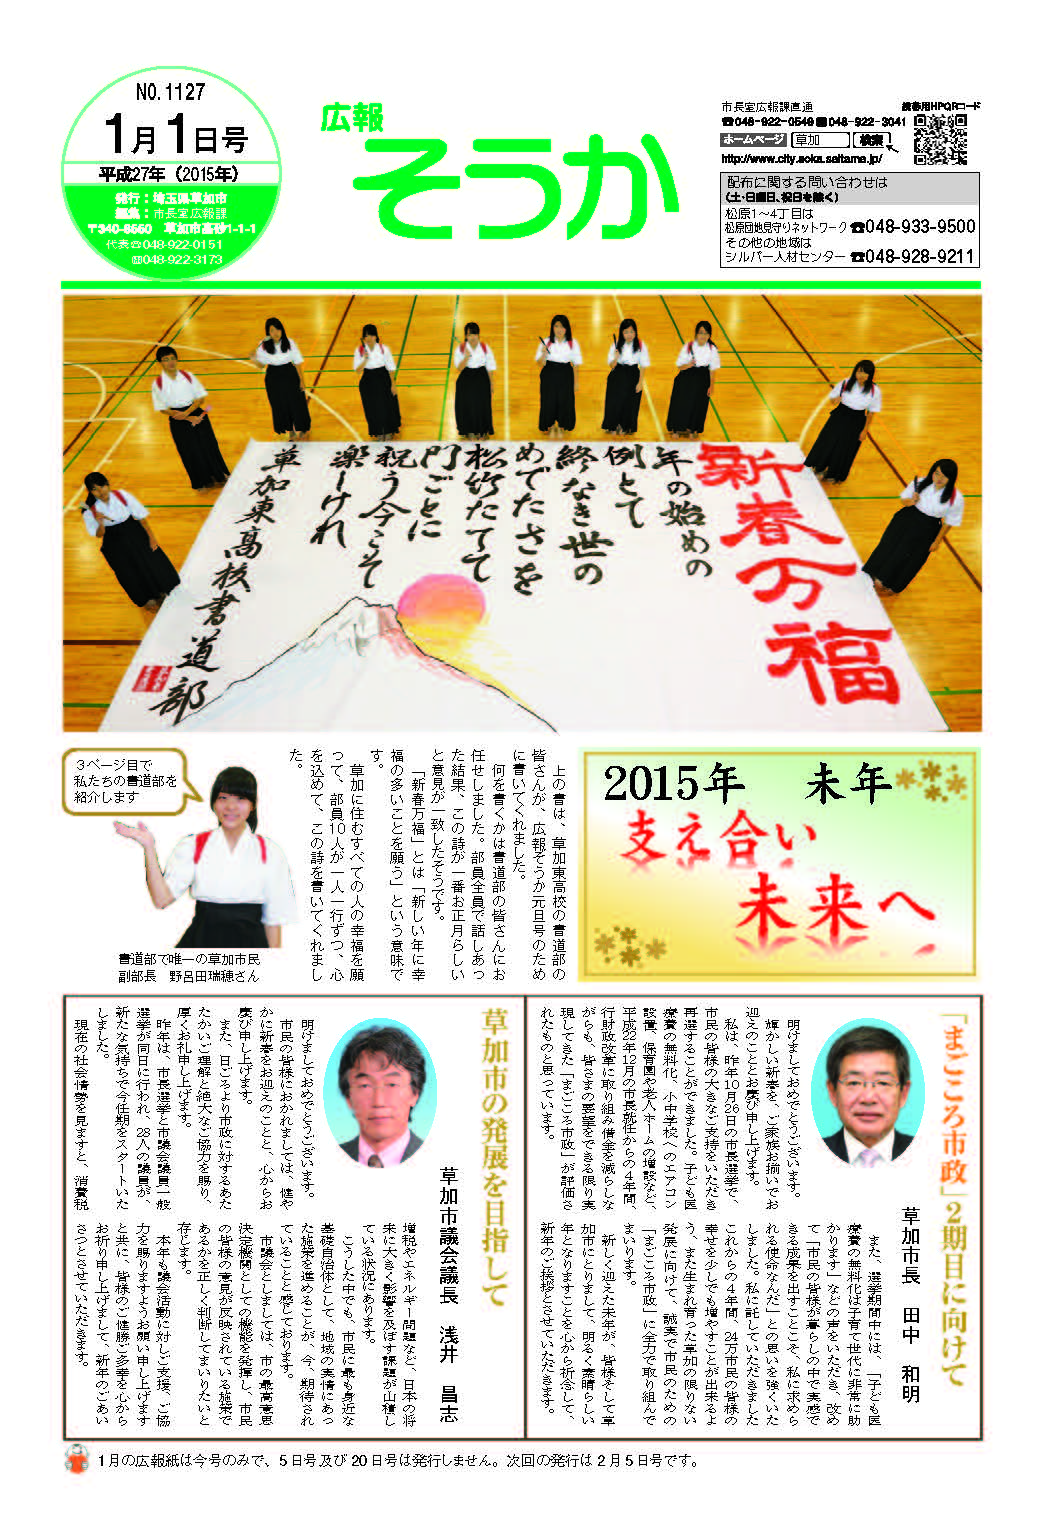 NO.1127
1月1日号
平成27年（2015年）
発行：埼玉県草加市
編集：市長室広報課
〒340-8550　草加市高砂1-1-1
代表☎048-922-0151
048-922-3173
広報
そうか
市長室広報課直通
☎048-922-0549 048-922-3041
ホームページ 草加 検索
http://www.city.soka.saitama.jp/
携帯用HPQRコード
配布に関する問い合わせは
（土・日曜日、祝日を除く）
松原1～4丁目は
松原団地見守りネットワーク ☎048-933-9500
その他の地域は
シルバー人材センター ☎048-928-9211
新春万福
年の始めの
例とて
終なき世の
めでたさを
松竹たてて
門ごとに
祝う今こそ
楽しけれ
草加東高校書道部
3ページ目で
私たちの書道部を
紹介します
書道部で唯一の草加市民
副部長　野呂田瑞穂さん
上の書は、草加東高校の書道部の
皆さんが、広報そうか元旦号のため
に書いてくれました。
何を書くかは書道部の皆さんにお
任せしました。部員全員で話しあっ
た結果、この詩が一番お正月らしい
と意見が一致したそうです。
「新春万福」とは「新しい年に幸
福の多いことを願う」という意味で
す。
草加に住むすべての人の幸福を願
って、部員10人が一人一行ずつ、心
を込めて、この詩を書いてくれまし
た。
2015年　未年
支え合い
未来へ
「まごころ市政」2期目に向けて
草加市長　田中　和明
明けましておめでとうございます。
輝かしい新春を、ご家族お揃いでお
迎えのこととお慶び申し上げます。
私は、昨年10月26日の市長選挙で、
市民の皆様の大きなご支持をいただき
再選することができました。子ども医
療費の無料化、小中学校へのエアコン
設置、保育園や老人ホームの増設など、
平成22年12月の市長就任からの4年間、
行財政改革に取り組み借金を減らしな
がらも、皆さまの要望をできる限り実
現してきた「まごころ市政」が評価さ
れたものと思っています。
また、選挙期間中には、「子ども医
療費の無料化は子育て世代に非常に助
かります」などの声をいただき、改め
て「市民の皆様が暮らしの中で実感で
きる成果を出すことこそ、私に求めら
れる使命なんだ」との思いを強くいた
しました。私に託していただきました
これからの4年間、24万市民の皆様の
幸せを少しでも増やすことが出来るよ
う、また生まれ育った草加の限りない
発展に向けて、誠実で市民のための
「まごころ市政」に全力で取り組んで
まいります。
新しく迎えた未年が、皆様そして草
加市にとりまして、明るく素晴らしい
年となりますことを心から祈念して、
新年のご挨拶とさせていただきます。
草加市の発展を目指して
草加市議会議長　浅井　昌志
明けましておめでとうございます。
市民の皆様におかれましては、健や
かに新春をお迎えのことと、心からお
慶び申し上げます。
また、日ごろより市政に対するあた
たかいご理解と絶大なご協力を賜り、
厚くお礼申し上げます。
昨年は、市長選挙と市議会議員一般
選挙が同日に行われ、28人の議員が、
新たな気持ちで今任期をスタートいた
しました。
現在の社会情勢を見ますと、消費税
増税やエネルギー問題など、日本の将
来に大きく影響を及ぼす課題が山積し
ている状況にあります。
こうした中でも、市民に最も身近な
基礎自治体として、地域の実情にあっ
た施策を進めることが、今、期待され
ていることと感じております。
市議会としましては、市の最高意思
決定機関としての機能を発揮し、市民
の皆様の意見が反映されている施策で
あるかを正しく判断してまいりたいと
存じます。
本年も議会活動に対しご支援、ご協
力を賜りますようお願い申し上げます
と共に、皆様のご健勝ご多幸を心から
お祈り申し上げまして、新年のごあい
さつとさせていただきます。
1月の広報紙は今号のみで、5日号及び20日号は発行しません。次回の発行は2月5日号です。